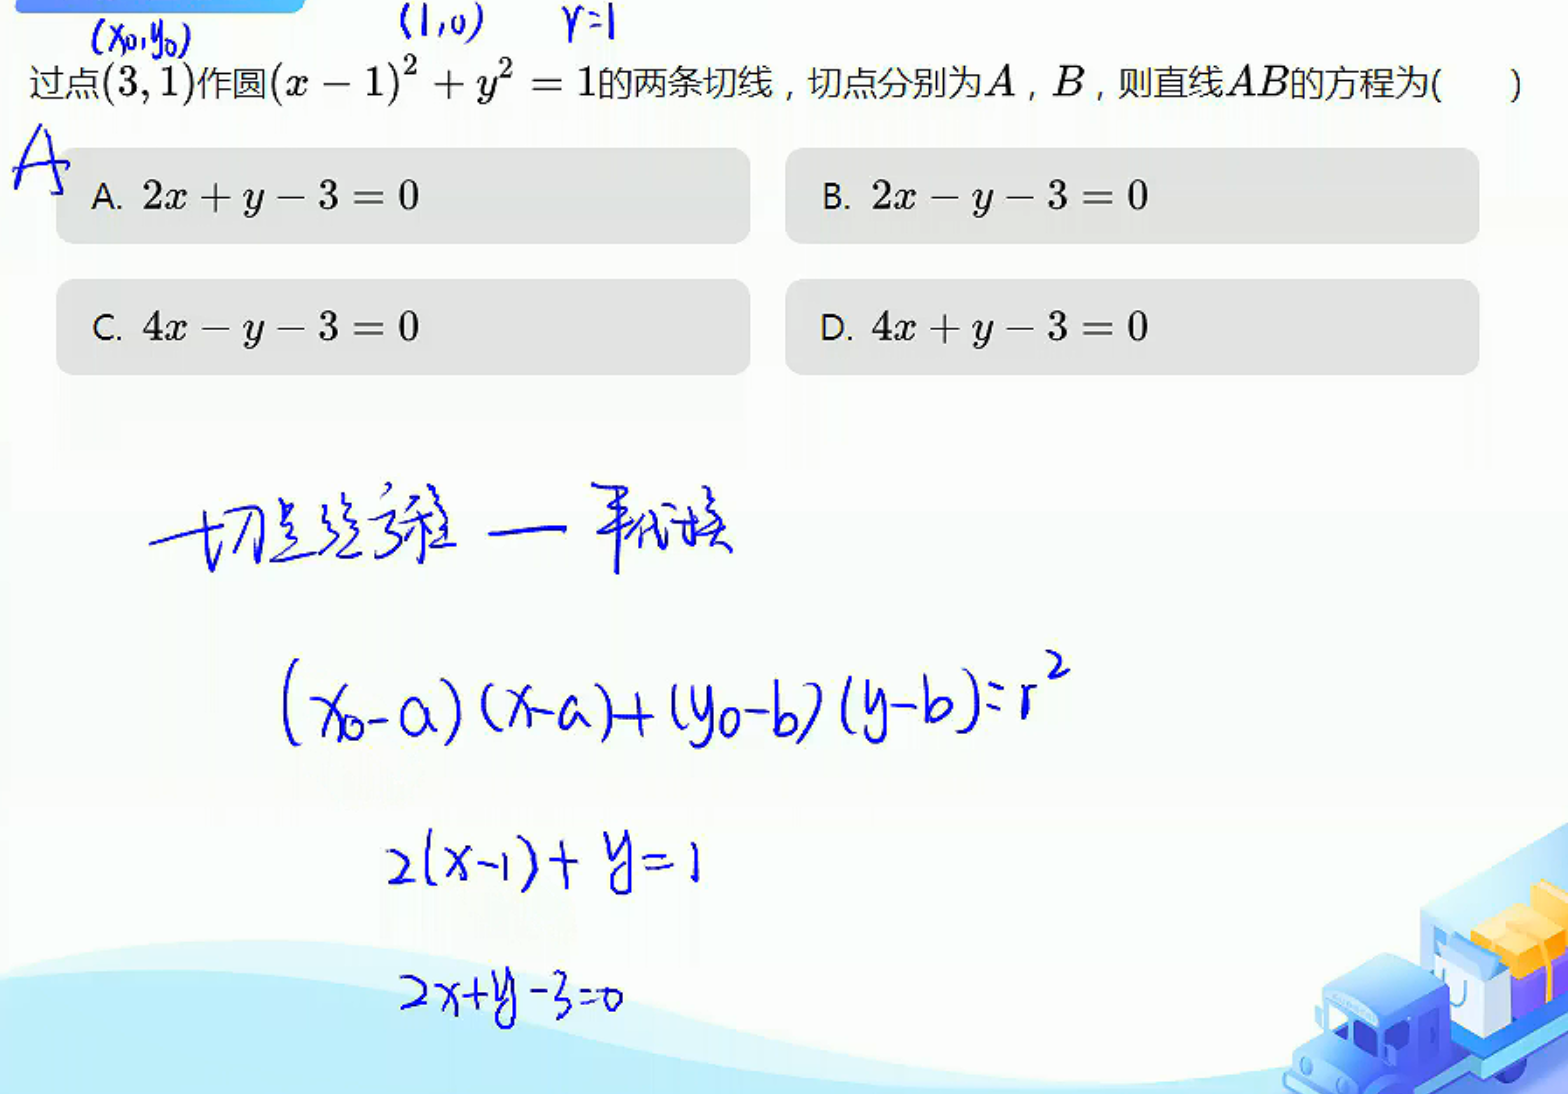 (x₀,y₀) (1,0) r=1
过点(3,1)作圆(x − 1)² + y² = 1的两条切线，切点分别为A，B，则直线AB的方程为( )
A
A. 2x + y − 3 = 0
B. 2x − y − 3 = 0
C. 4x − y − 3 = 0
D. 4x + y − 3 = 0
切点弦方程 — 半代换
(x₀-a)(x-a)+(y₀-b)(y-b)=r²
2(x-1)+y=1
2x+y-3=0